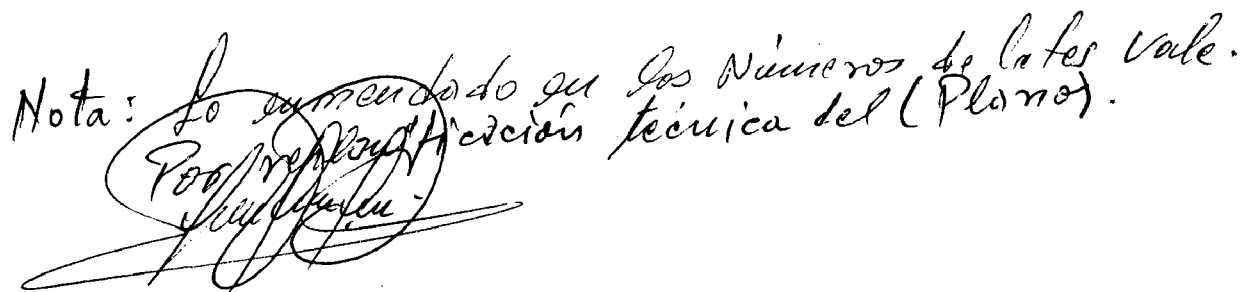 Nota: Lo enmendado en los Números de lotes vale.
Por replanificación técnica del (Plano).